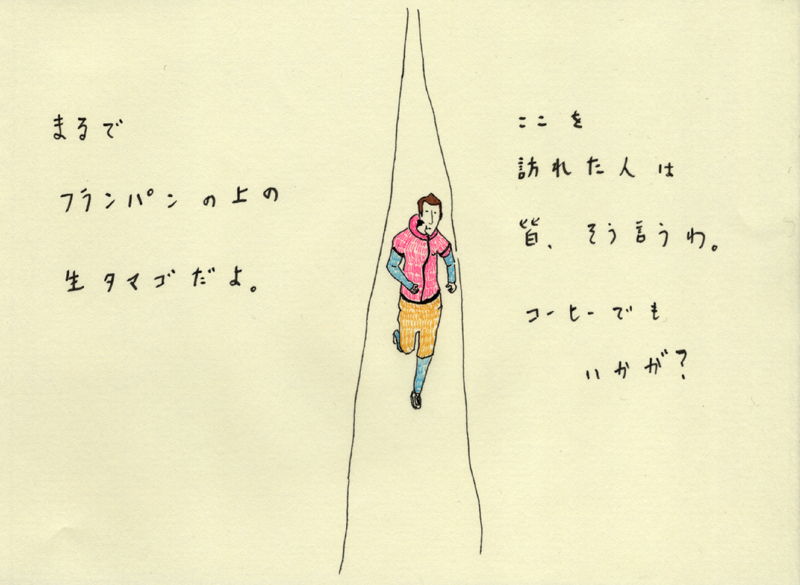 まるで
フランパンの上の
生タマゴだよ。
ここを
訪れた人は
皆、そう言うわ。
コーヒーでも
いかが?